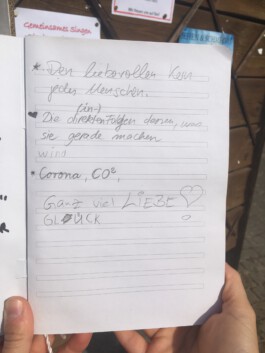 Gemeinsames Singen
* Den liebevollen Kern
jedes Menschen.
(in-)
♥ Die direkten Folgen davon, was
sie gerade machen
wird
• Corona, CO²,
Ga-z viel LiEBE ♡
GLÜCK